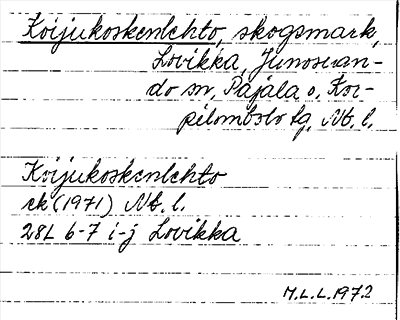 Koijukoskenlehto, skogsmark,
Lovikka, Junosuan-
do sn, Pajala o. Kor-
pilombolo tg, Nb. l.
Koijukoskenlehto
ek (1971) Nb. l.
28L 6-7 i-j Lovikka
M.L.L. 1972